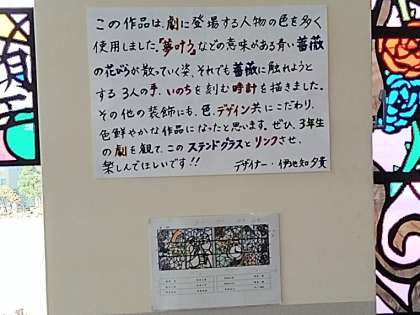 この作品は、劇に登場する人物の色を多く
使用しました。「夢叶う」などの意味がある青い薔薇
の花びらが散っていく姿、それでも薔薇に触れようと
する3人の手、いのちを刻む時計を描きました。
その他の装飾にも、色、デザイン共にこだわり、
色鮮やかな作品になったと思います。ぜひ、3年生
の劇を観て、このステンドグラスとリンクさせ、
楽しんでほしいです!!
デザイナー・伊地知夕貴